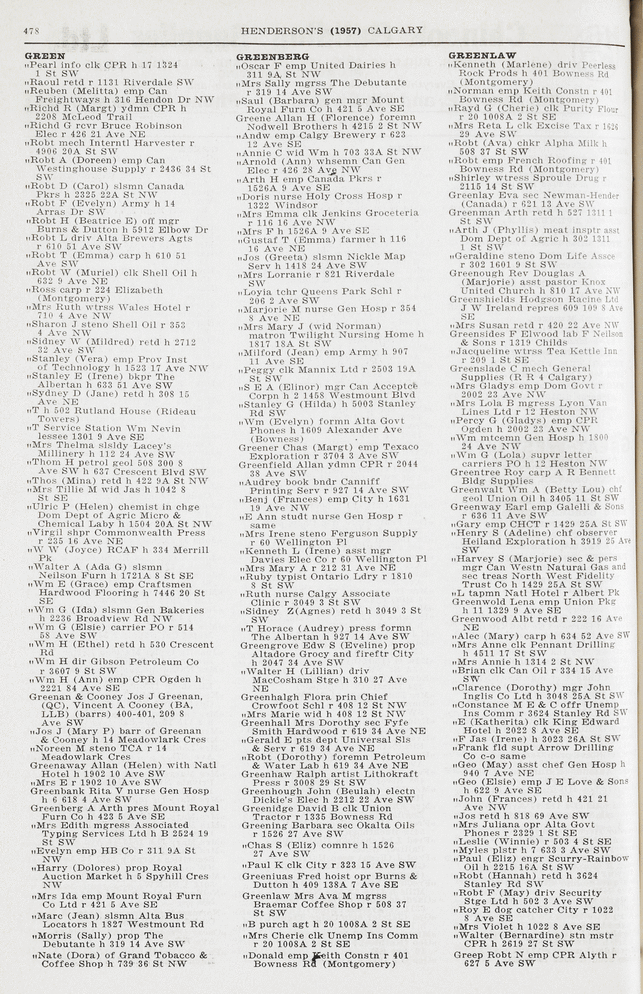 478
HENDERSON'S (1957) CALGARY
GREEN
"Pearl info clk CPR h 17 1324
1 St SW
"Raoul retd r 1131 Riverdale SW
"Reuben (Melitta) emp Can
Freightways h 316 Hendon Dr NW
"Richd R (Margt) ydmn CPR h
2208 McLeod Trail
"Richd G rcvr Bruce Robinson
Elec r 426 21 Ave NE
"Robt mech Interntl Harvester r
4906 20A St SW
"Robt A (Doreen) emp Can
Westinghouse Supply r 2436 34 St
SW
"Robt D (Carol) slsmn Canada
Pkrs h 2325 22A St NW
"Robt F (Evelyn) Army h 14
Arras Dr SW
"Robt H (Beatrice E) off mgr
Burns & Dutton h 5912 Elbow Dr
"Robt L driv Alta Brewers Agts
r 610 51 Ave SW
"Robt T (Emma) carp h 610 51
Ave SW
"Robt W (Muriel) clk Shell Oil h
632 9 Ave NE
"Ross carp r 224 Elizabeth
(Montgomery)
"Mrs Ruth wtrss Wales Hotel r
710 4 Ave NW
"Sharon J steno Shell Oil r 353
4 Ave NW
"Sidney W (Mildred) retd h 2712
32 Ave SW
"Stanley (Vera) emp Prov Inst
of Technology h 1523 17 Ave NW
"Stanley E (Irene) bkpr The
Albertan h 633 51 Ave SW
"Sydney D (Jane) retd h 308 15
Ave NE
"T h 502 Rutland House (Rideau
Towers)
"T Service Station Wm Nevin
lessee 1301 9 Ave SE
"Mrs Thelma slsldy Lacey's
Millinery h 112 24 Ave SW
"Thom H petrol geol 508 300 8
Ave SW h 637 Crescent Blvd SW
"Thos (Mina) retd h 422 9A St NW
"Mrs Tillie M wid Jas h 1042 8
St SE
"Ulric P (Helen) chemist in chge
Dom Dept of Agric Micro &
Chemical Laby h 1504 20A St NW
"Virgil shpr Commonwealth Press
r 235 16 Ave NE
"W W (Joyce) RCAF h 334 Merrill
Pk
"Walter A (Ada G) slsmn
Neilson Furn h 1721A 8 St SE
"Wm E (Grace) emp Craftsmen
Hardwood Flooring h 7446 20 St
SE
"Wm G (Ida) slsmn Gen Bakeries
h 2236 Broadview Rd NW
"Wm G (Elsie) carrier PO r 514
58 Ave SW
"Wm H (Ethel) retd h 530 Crescent
Rd
"Wm H dir Gibson Petroleum Co
r 3607 9 St SW
"Wm H (Ann) emp CPR Ogden h
2221 84 Ave SE
Greenan & Cooney Jos J Greenan,
(QC), Vincent A Cooney (BA,
LLB) (barrs) 400-401, 209 8
Ave SW
"Jos J (Mary P) barr of Greenan
& Cooney h 14 Meadowlark Cres
"Noreen M steno TCA r 14
Meadowlark Cres
Greenaway Allan (Helen) with Natl
Hotel h 1902 10 Ave SW
"Mrs E r 1902 10 Ave SW
Greenbank Rita V nurse Gen Hosp
h 6 618 4 Ave SW
Greenberg A Arth pres Mount Royal
Furn Co h 423 5 Ave SE
"Mrs Edith mgress Associated
Typing Services Ltd h B 2524 19
St SW
"Evelyn emp HB Co r 311 9A St
NW
"Harry (Dolores) prop Royal
Auction Market h 5 Spyhill Cres
NW
"Mrs Ida emp Mount Royal Furn
Co Ltd r 421 5 Ave SE
"Marc (Jean) slsmn Alta Bus
Locators h 1827 Westmount Rd
"Morris (Sally) prop The
Debutante h 319 14 Ave SW
"Nate (Dora) of Grand Tobacco &
Coffee Shop h 739 36 St NW
GREENBERG
"Oscar F emp United Dairies h
311 9A St NW
"Mrs Sally mgrss The Debutante
r 319 14 Ave SW
"Saul (Barbara) gen mgr Mount
Royal Furn Co h 421 5 Ave SE
Greene Allan H (Florence) foremn
Nodwell Brothers h 4215 2 St NW
"Andw emp Calgy Brewery r 623
12 Ave SE
"Annie C wid Wm h 703 33A St NW
"Arnold (Ann) whsemn Can Gen
Elec r 426 28 Ave NW
"Arth H emp Canada Pkrs r
1526A 9 Ave SE
"Doris nurse Holy Cross Hosp r
1322 Windsor
"Mrs Emma clk Jenkins Groceteria
r 116 16 Ave NW
"Mrs F h 1526A 9 Ave SE
"Gustaf T (Emma) farmer h 116
16 Ave NW
"Jos (Greeta) slsmn Nickle Map
Serv h 1418 24 Ave SW
"Mrs Lorranie r 821 Riverdale
SW
"Loyia tchr Queens Park Schl r
206 2 Ave SW
"Marjorie M nurse Gen Hosp r 354
8 Ave NE
"Mrs Mary J (wid Norman)
matron Twilight Nursing Home h
1817 18A St SW
"Milford (Jean) emp Army h 907
11 Ave SE
"Peggy clk Mannix Ltd r 2503 19A
St SW
"S E A (Elinor) mgr Can Acceptce
Corpn h 2 1458 Westmount Blvd
"Stanley G (Hilda) h 5003 Stanley
Rd SW
"Wm (Evelyn) formn Alta Govt
Phones h 1609 Alexander Ave
(Bowness)
Greener Chas (Margt) emp Texaco
Exploration r 3704 3 Ave SW
Greenfield Allan ydmn CPR r 2044
38 Ave SW
"Audrey book bndr Canniff
Printing Serv r 927 14 Ave SW
"Benj (Frances) emp City h 1631
19 Ave NW
"E Ann studt nurse Gen Hosp r
same
"Mrs Irene steno Ferguson Supply
r 60 Wellington Pl
"Kenneth L (Irene) asst mgr
Davies Elec Co r 60 Wellington Pl
"Mrs Mary A r 212 31 Ave NE
"Ruby typist Ontario Ldry r 1810
8 St SW
"Ruth nurse Calgy Associate
Clinic r 3049 3 St SW
"Sidney Z(Agnes) retd h 3049 3 St
SW
"T Horace (Audrey) press formn
The Albertan h 927 14 Ave SW
Greengrove Edw S (Eveline) prop
Altadore Grocy and fireftr City
h 2047 34 Ave SW
"Walter H (Lillian) driv
MacCosham Stge h 310 27 Ave
NE
Greenhalgh Flora prin Chief
Crowfoot Schl r 408 12 St NW
"Mrs Marie wid h 408 12 St NW
Greenhall Mrs Dorothy sec Fyfe
Smith Hardwood r 619 34 Ave NE
"Gerald E pts dept Universal Sls
& Serv r 619 34 Ave NE
"Robt (Dorothy) foremn Petroleum
& Water Lab h 619 34 Ave NE
Greenhaw Ralph artist Lithokraft
Press r 3008 29 St SW
Greenhough John (Beulah) electn
Dickie's Elec h 2212 22 Ave SW
Greenidge David B clk Union
Tractor r 1335 Bowness Rd
Greening Barbara sec Okalta Oils
r 1526 27 Ave SW
"Chas S (Eliz) comnre h 1526
27 Ave SW
"Paul K clk City r 323 15 Ave SW
Greeniuas Fred hoist opr Burns &
Dutton h 409 138A 7 Ave SE
Greenlaw Mrs Ava M mgrss
Braemar Coffee Shop r 508 37
St SW
"B purch agt h 20 1008A 2 St SE
"Mrs Cherie clk Unemp Ins Comm
r 20 1008A 2 St SE
"Donald emp Keith Constn r 401
Bowness Rd (Montgomery)
GREENLAW
"Kenneth (Marlene) driv Peerless
Rock Prods h 401 Bowness Rd
(Montgomery)
"Norman emp Keith Constn r 401
Bowness Rd (Montgomery)
"Rayd G (Cherie) clk Purity Flour
r 20 1008A 2 St SE
"Mrs Reta L clk Excise Tax r 1626
29 Ave SW
"Robt (Ava) chkr Alpha Milk h
508 37 St SW
"Robt emp French Roofing r 401
Bowness Rd (Montgomery)
"Shirley wtress Sproule Drug r
2115 14 St SW
Greenlay Eva sec Newman-Hender
(Canada) r 621 13 Ave SW
Greenman Arth retd h 527 1311 1
St SW
"Arth J (Phyllis) meat insptr asst
Dom Dept of Agric h 302 1311
1 St SW
"Geraldine steno Dom Life Assce
r 302 1601 9 St SW
Greenough Rev Douglas A
(Marjorie) asst pastor Knox
United Church h 810 17 Ave NW
Greenshields Hodgson Racine Ltd
J W Ireland repres 609 109 8 Ave
SE
"Mrs Susan retd r 420 22 Ave NW
Greensides F Elwood lab F Neilson
& Sons r 1319 Childs
"Jacqueline wtrss Tea Kettle Inn
r 209 1 St SE
Greenslade C mech General
Supplies (R R 4 Calgary)
"Mrs Gladys emp Dom Govt r
2002 23 Ave NW
"Mrs Lola B mgress Lyon Van
Lines Ltd r 12 Heston NW
"Percy G (Gladys) emp CPR
Ogden h 2002 23 Ave NW
"Wm mtcemn Gen Hosp h 1800
24 Ave NW
"Wm G (Lola) supvr letter
carriers PO h 12 Heston NW
Greentree Roy carp A R Bennett
Bldg Products
Greenwalt Wm A (Betty Lou) chf
geol Union Oil h 3405 11 St SW
Greenway Earl emp Galelli & Sons
r 636 11 Ave SW
"Gary emp CHCT r 1429 25A St SW
"Henry S (Adeline) chf observer
Heiland Exploration h 3919 25 Ave
SW
"Harvey S (Marjorie) sec & pers
mgr Can Westn Natural Gas and
sec treas North West Fidelity
Trust Co h 1429 25A St SW
"L tapmn Natl Hotel r Albert Pk
Greenwold Lena emp Union Pkg
h 11 1329 9 Ave SE
Greenwood Albt retd r 222 16 Ave
NE
"Alec (Mary) carp h 634 52 Ave SW
"Mrs Anne clk Pennant Drilling
h 4511 17 St SW
"Mrs Annie h 1314 2 St NW
"Brian clk Can Oil r 334 15 Ave
SW
"Clarence (Dorothy) mgr John
Inglis Co Ltd h 3048 25A St SW
"Constance M E & C offr Unemp
Ins Comm r 3624 Stanley Rd SW
"E (Katherita) clk King Edward
Hotel h 2022 8 Ave SE
"F Jas (Irene) h 3023 26A St SW
"Frank fld supt Arrow Drilling
Co c-o same
"Geo (May) asst chef Gen Hosp h
940 7 Ave NE
"Geo (Elsie) emp J E Love & Sons
h 622 9 Ave SE
"John (Frances) retd h 421 21
Ave NW
"Jos retd h 818 69 Ave SW
"Mrs Juliana opr Alta Govt
Phones r 2329 1 St SE
"Leslie (Winnie) r 503 4 St SE
"Myles plstr h 7 633 3 Ave SW
"Paul (Eliz) engr Scurry-Rainbow
Oil h 2215 16A St SW
"Robt (Hannah) retd h 3624
Stanley Rd SW
"Robt F (May) driv Security
Stge Ltd h 502 3 Ave SW
"Roy E dog catcher City r 1022
8 Ave SE
"Mrs Violet h 1022 8 Ave SE
"Walter (Bernardine) stn mstr
CPR h 2619 27 St SW
Greep Robt N emp CPR Alyth r
627 5 Ave SW